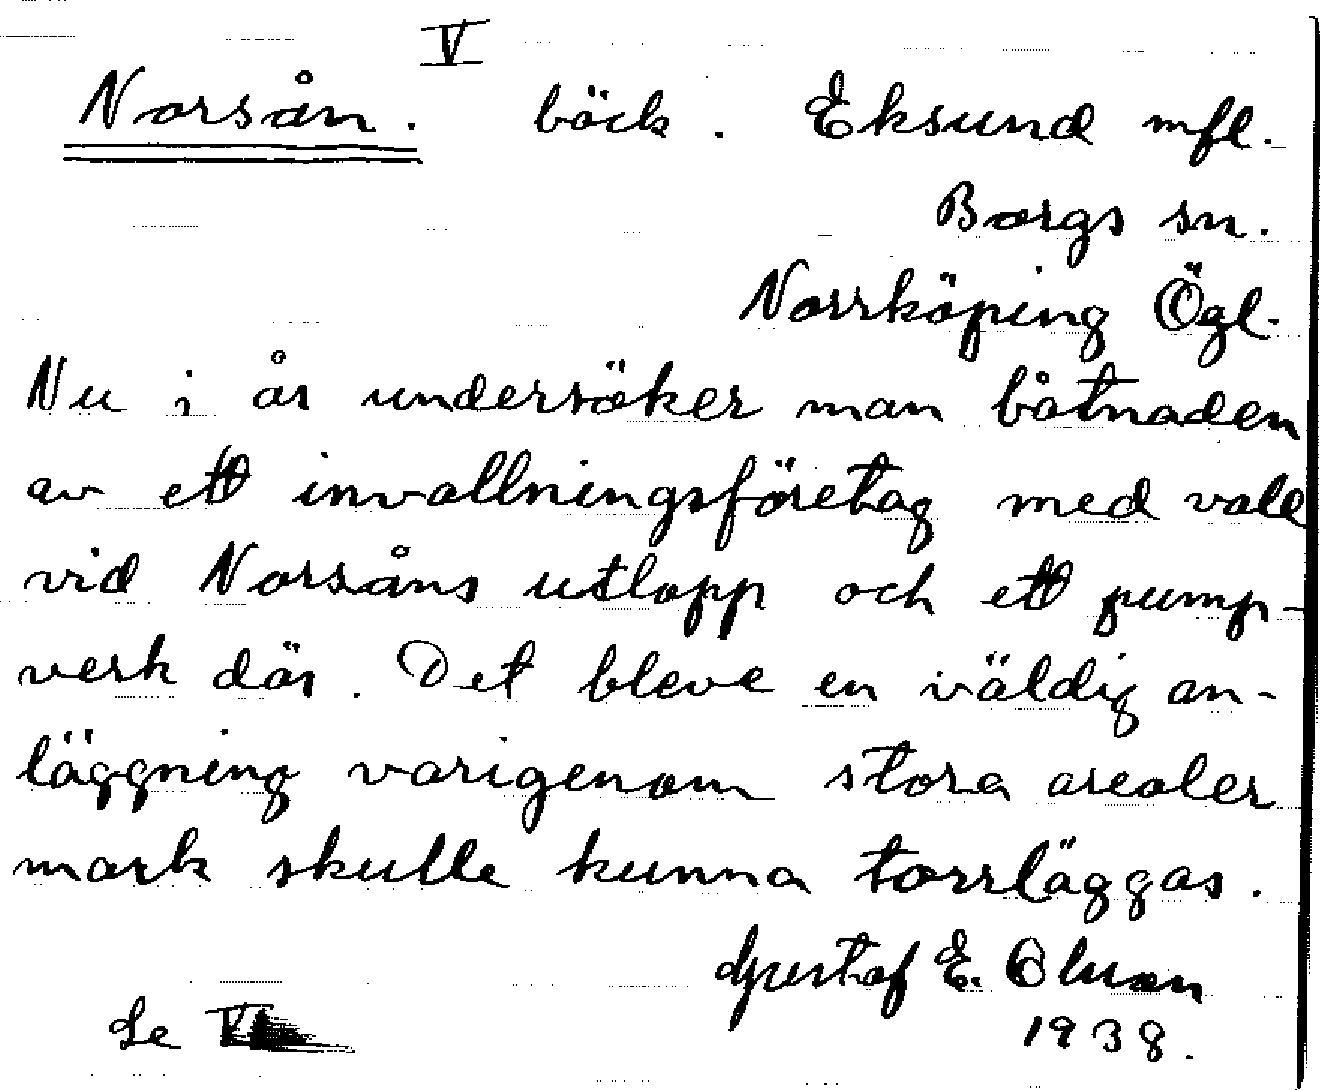 V
Norsån. bäck. Eksund mfl.
Borgs sn.
Norrköping Ögl.
Nu i år undersöker man båtnaden
av ett invallningsföretag med vall
vid Norsåns utlopp och ett pump-
verk där. Det bleve en väldig an-
läggning varigenom stora arealer
mark skulle kunna torrläggas.
Gustaf E. Olsson
Se VI 1938.